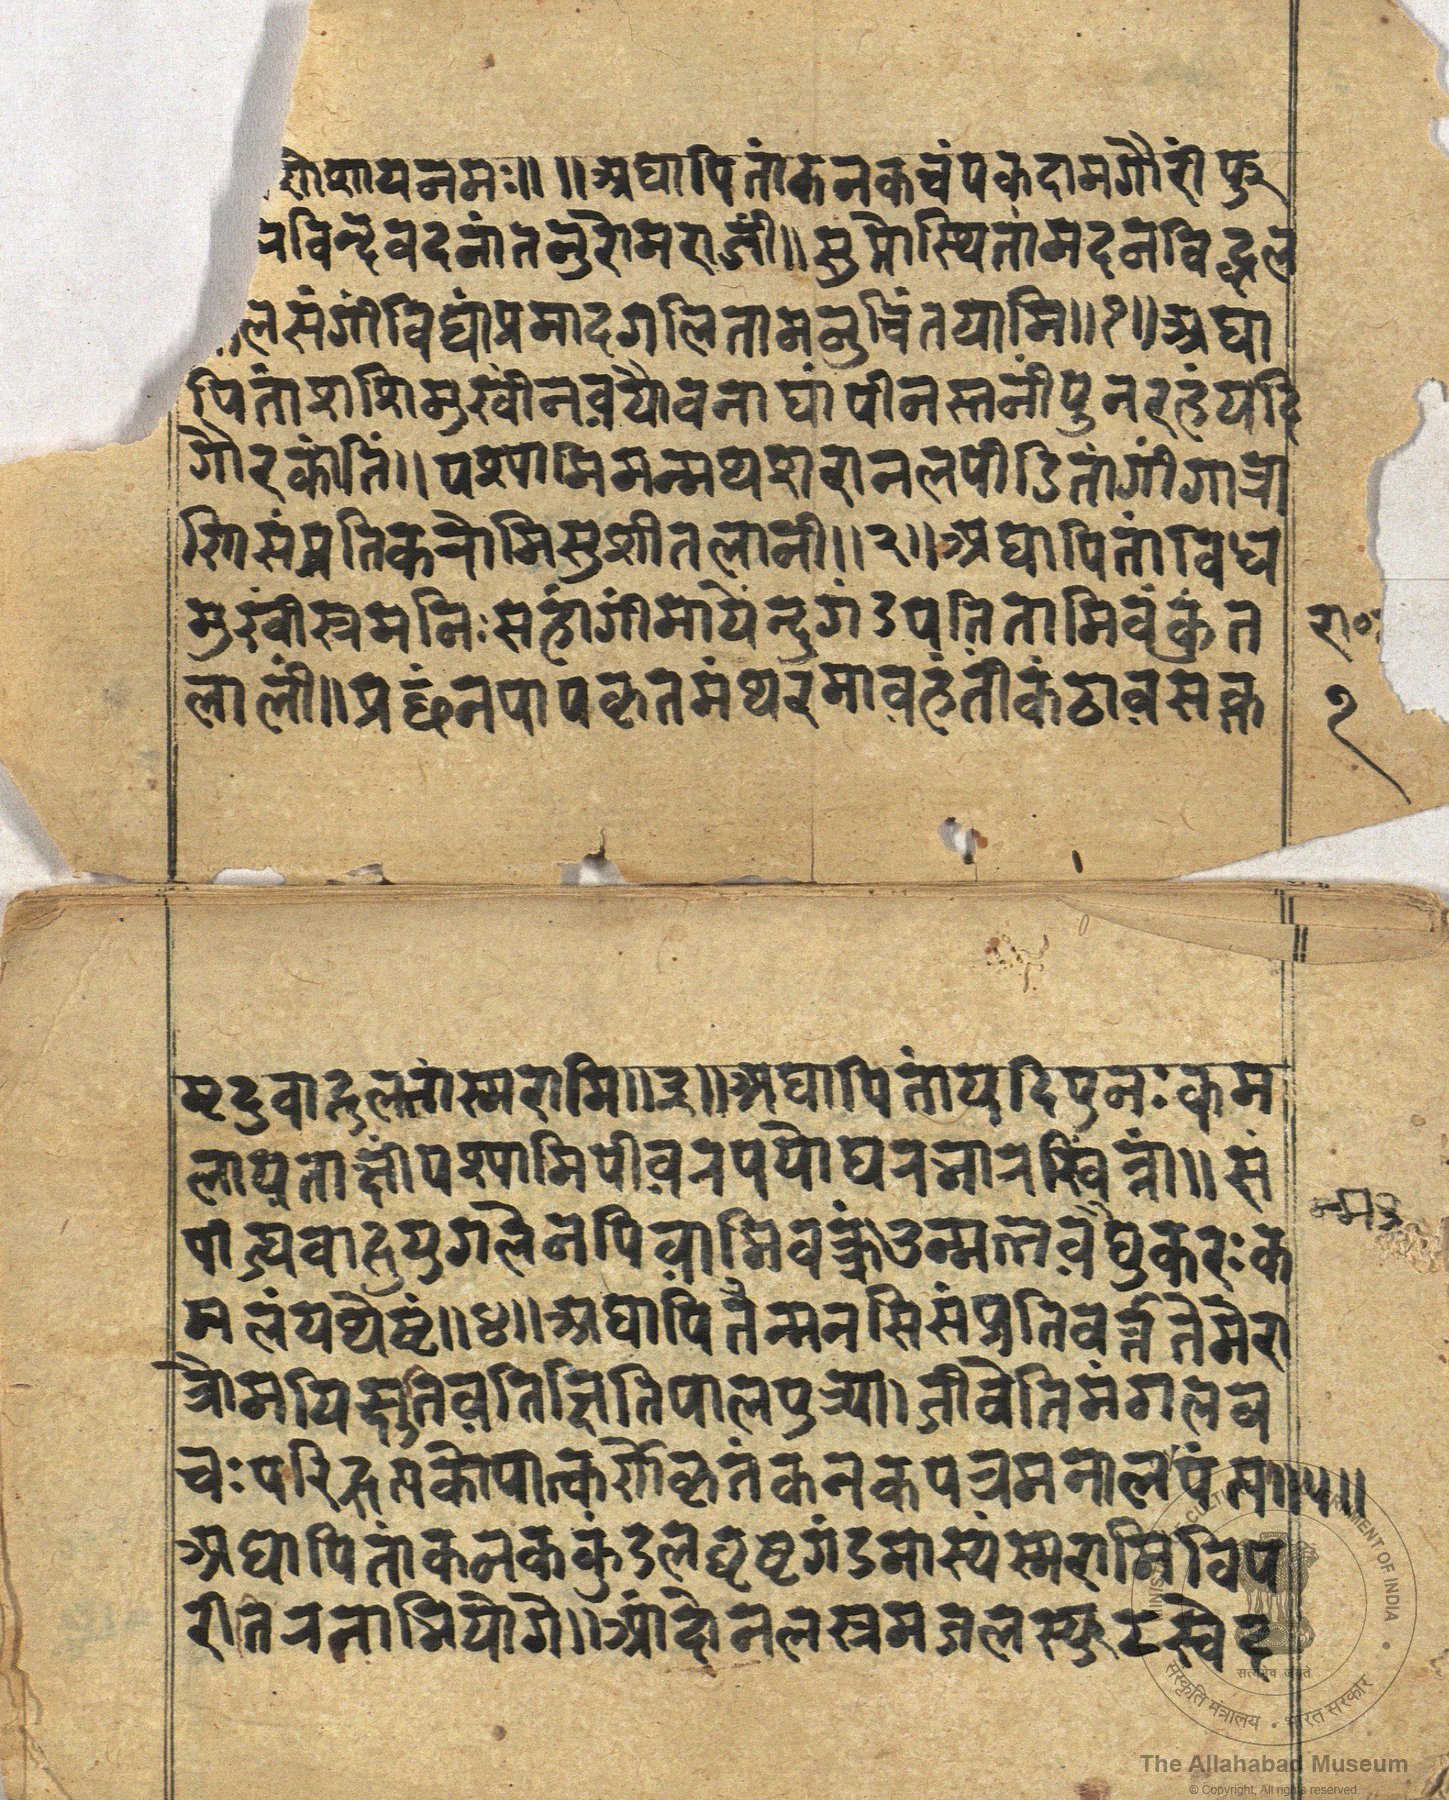 णेशायनमः॥ ॥अद्यापितांकनकचंपकदामगौरीं फुल्
रविन्देवदनांतनुरोमराजीं॥सुप्तोस्थितांमदनविह्वल
लसंगीविद्यांप्रमादगलितामनुचिंतयामि॥१॥अद्या
पितांशशिमुखींनवयौवनाद्यांपीनस्तनींपुनरहंयदि
गौरकांतिं॥पश्यामिमन्मथशरानलपीडितांगींगात्रा
णिसंप्रतिकरोमिसुशीतलानी॥२॥अद्यापितांविघ
मुखींस्त्रमनिःसहांगींमायेन्दुगंडपतितामिवकुंत
लालीं॥प्रछंनपापकृतमंथरमावहंतींकंठावसक्त
रा॰
१
मृदुवाहुलतांस्मरामि॥३॥अद्यापितांयदिपुनःकम
लायताक्षींपश्यामिपीवरपयोधरभारखिंन्नां॥सं
पीड्यवाहुयुगलेनपिवामिवक्त्रं उन्मत्तवंधुकरःक
मलंयथेष्टं॥४॥अद्यापितन्मनसिसंप्रतिवर्त्ततेमेरा
त्रौमयिक्षुतिवतिक्षितिपालपुत्र्या।जीवेतिमंगलव
चःपरिहृत्यकोपात्कर्णेकृतंकनकपत्रमनालपंत्या॥५॥
अद्यापितांकनककुंडलघृष्टगंडमास्यंस्मरामिविप
रीतरताभियोगे॥आंदोलनस्त्रमजलस्फुटस्वेद
The Allahabad Museum
© Copyright, All rights reserved.
GOVERNMENT OF INDIA
सत्यमेव जयते
संस्कृति मंत्रालय • भारत सरकार